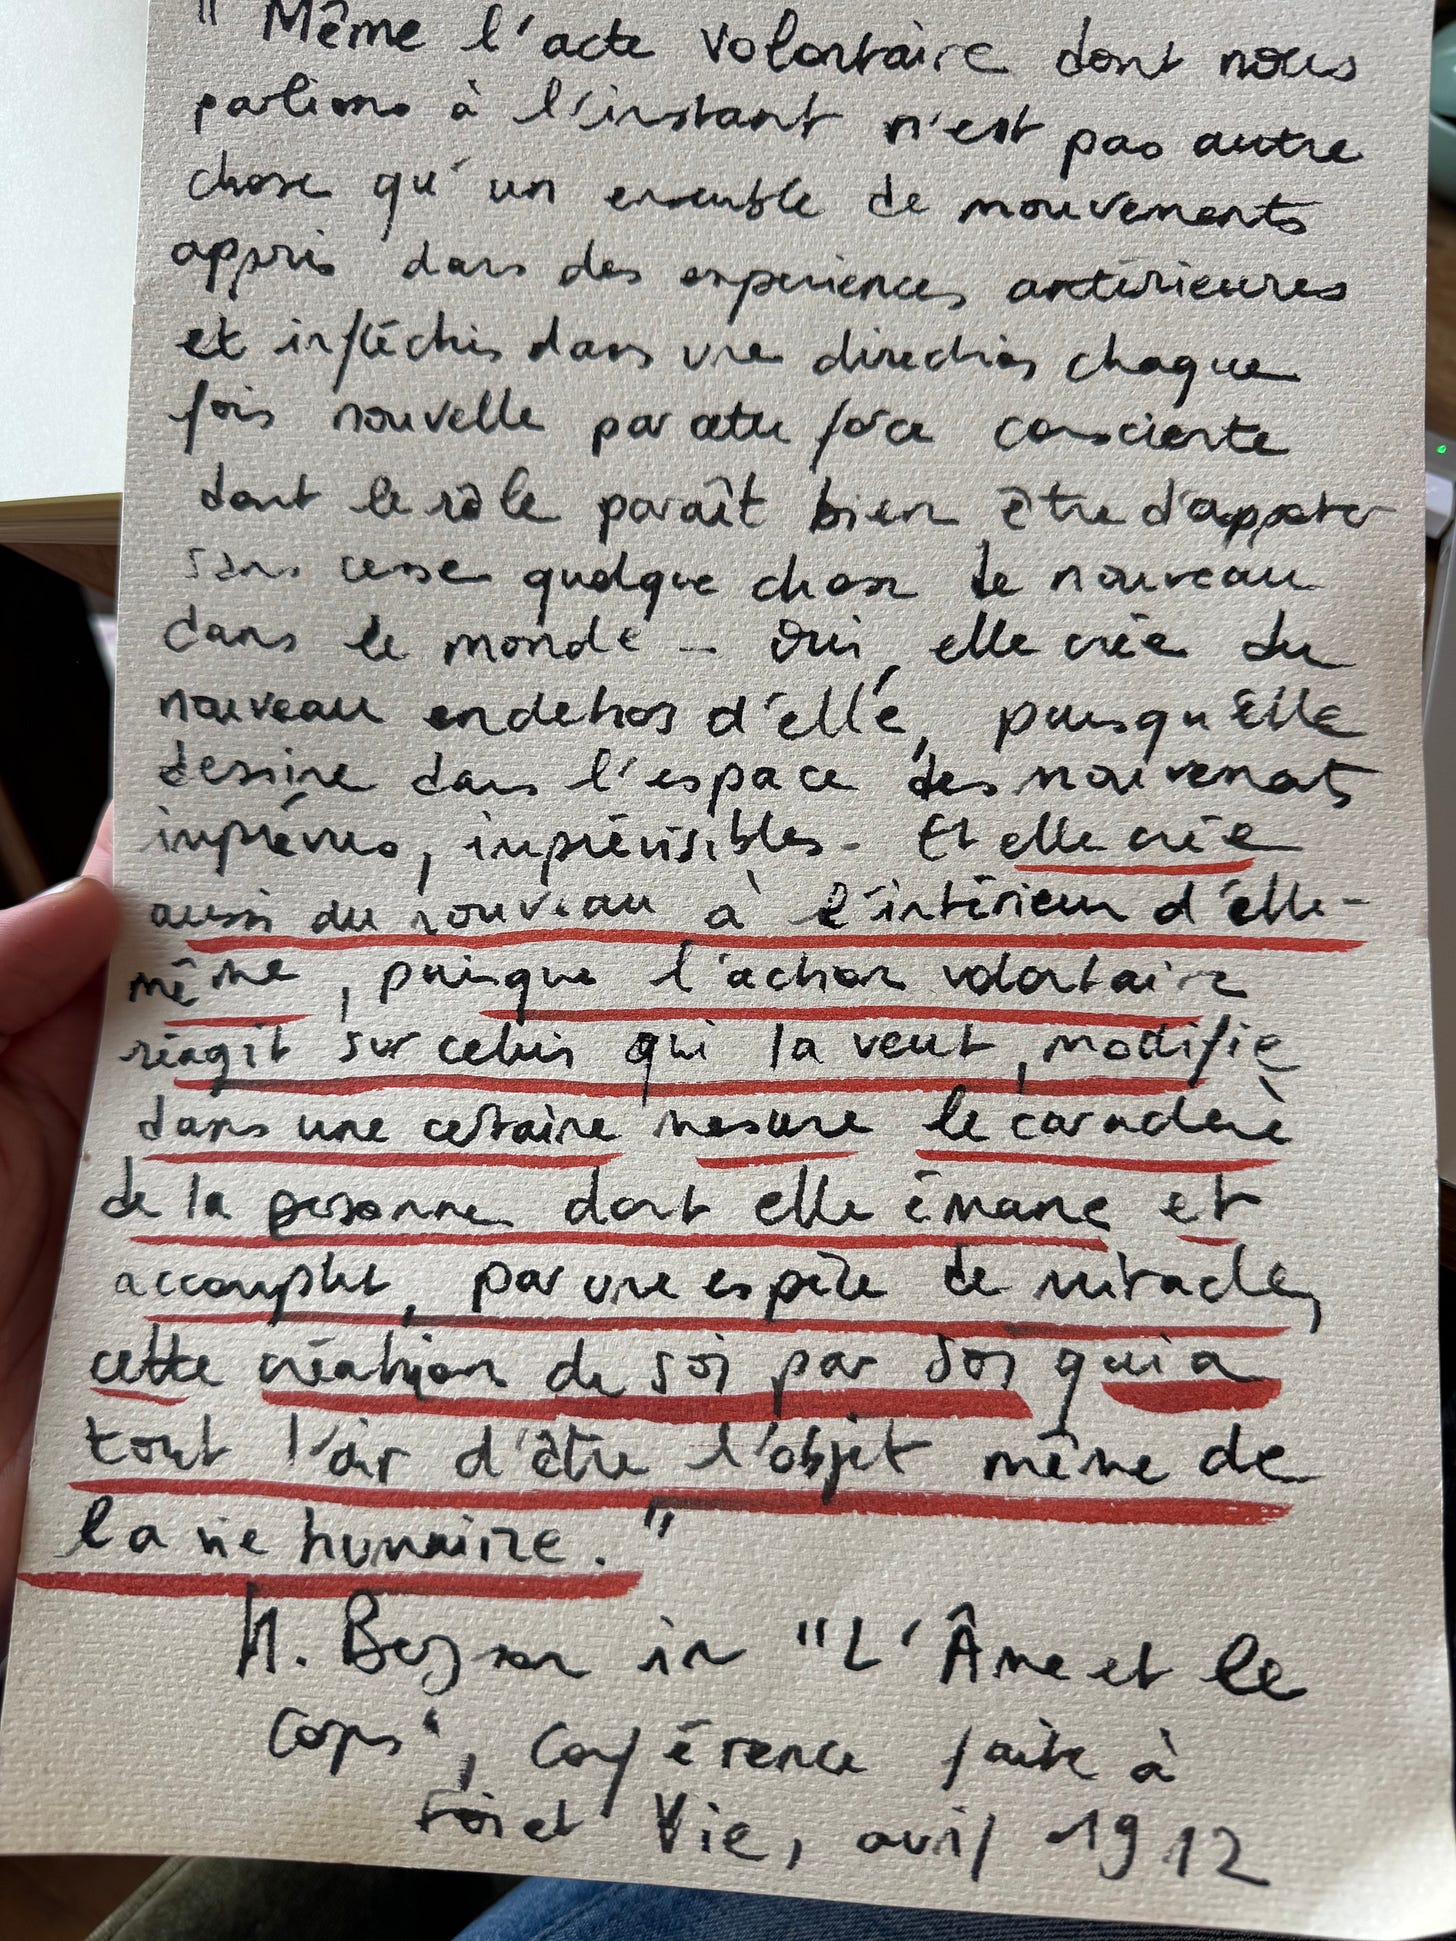 " Même l'acte volontaire dont nous
parlions à l'instant n'est pas autre
chose qu'un ensemble de mouvements
appris dans des expériences antérieures
et infléchis dans une direction chaque
fois nouvelle par cette force consciente
dont le rôle paraît bien être d'apporter
sans cesse quelque chose de nouveau
dans le monde - Oui, elle crée du
nouveau en dehors d'elle, puisqu'elle
dessine dans l'espace des mouvements
imprévus, imprévisibles - Et elle crée
aussi du nouveau à l'intérieur d'elle-
même, puisque l'action volontaire
réagit sur celui qui la veut, modifie
dans une certaine mesure le caractère
de la personne dont elle émane et
accomplit, par une espèce de miracle,
cette création de soi par soi qui a
tout l'air d'être l'objet même de
la vie humaine. "
H. Bergson in "L'Âme et le
Corps", Conférence faite à
Foi et Vie, avril 1912